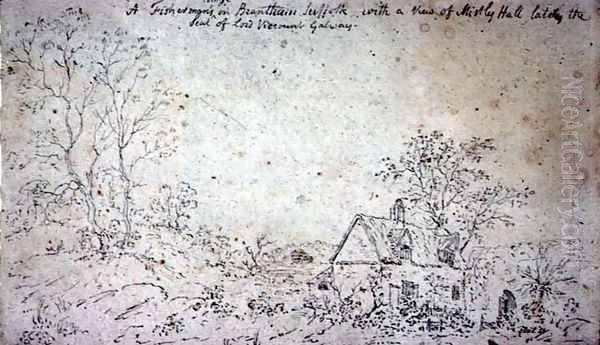 A Fisherman's in Brantham Suffolk with a View of Mistley Hall lately the
Seat of Lord Viscount Galway.
NiceArtGallery.com